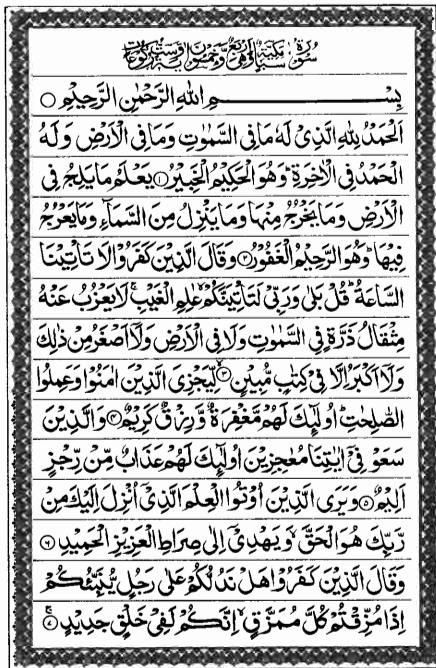 سُوْرَةُ سَبَاٍ مَكِّيَّةٌ وَّهِيَ اَرْبَعٌ وَّخَمْسُوْنَ اٰيَةً وَّسِتُّ رُكُوْعَاتٍ
بِسْمِ اللّٰهِ الرَّحْمٰنِ الرَّحِيْمِ
اَلْحَمْدُ لِلّٰهِ الَّذِيْ لَهٗ مَا فِي السَّمٰوٰتِ وَمَا فِي الْاَرْضِ وَلَهُ
الْحَمْدُ فِي الْاٰخِرَةِ ۚ وَهُوَ الْحَكِيْمُ الْخَبِيْرُ ۝۱ يَعْلَمُ مَا يَلِجُ فِي
الْاَرْضِ وَمَا يَخْرُجُ مِنْهَا وَمَا يَنْزِلُ مِنَ السَّمَآءِ وَمَا يَعْرُجُ
فِيْهَا ۚ وَهُوَ الرَّحِيْمُ الْغَفُوْرُ ۝۲ وَقَالَ الَّذِيْنَ كَفَرُوْا لَا تَاْتِيْنَا
السَّاعَةُ ۚ قُلْ بَلٰى وَرَبِّيْ لَتَاْتِيَنَّكُمْ ۙ عٰلِمِ الْغَيْبِ ۚ لَا يَعْزُبُ عَنْهُ
مِثْقَالُ ذَرَّةٍ فِي السَّمٰوٰتِ وَلَا فِي الْاَرْضِ وَلَآ اَصْغَرُ مِنْ ذٰلِكَ
وَلَآ اَكْبَرُ اِلَّا فِيْ كِتٰبٍ مُّبِيْنٍ ۝۳ لِّيَجْزِيَ الَّذِيْنَ اٰمَنُوْا وَعَمِلُوا
الصّٰلِحٰتِ ۚ اُولٰٓئِكَ لَهُمْ مَّغْفِرَةٌ وَّرِزْقٌ كَرِيْمٌ ۝۴ وَالَّذِيْنَ
سَعَوْ فِيْٓ اٰيٰتِنَا مُعٰجِزِيْنَ اُولٰٓئِكَ لَهُمْ عَذَابٌ مِّنْ رِّجْزٍ
اَلِيْمٌ ۝۵ وَيَرَى الَّذِيْنَ اُوْتُوا الْعِلْمَ الَّذِيْٓ اُنْزِلَ اِلَيْكَ مِنْ
رَّبِّكَ هُوَ الْحَقَّ ۙ وَيَهْدِيْٓ اِلٰى صِرَاطِ الْعَزِيْزِ الْحَمِيْدِ ۝۶
وَقَالَ الَّذِيْنَ كَفَرُوْا هَلْ نَدُلُّكُمْ عَلٰى رَجُلٍ يُّنَبِّئُكُمْ
اِذَا مُزِّقْتُمْ كُلَّ مُمَزَّقٍ ۙ اِنَّكُمْ لَفِيْ خَلْقٍ جَدِيْدٍ ۝۷